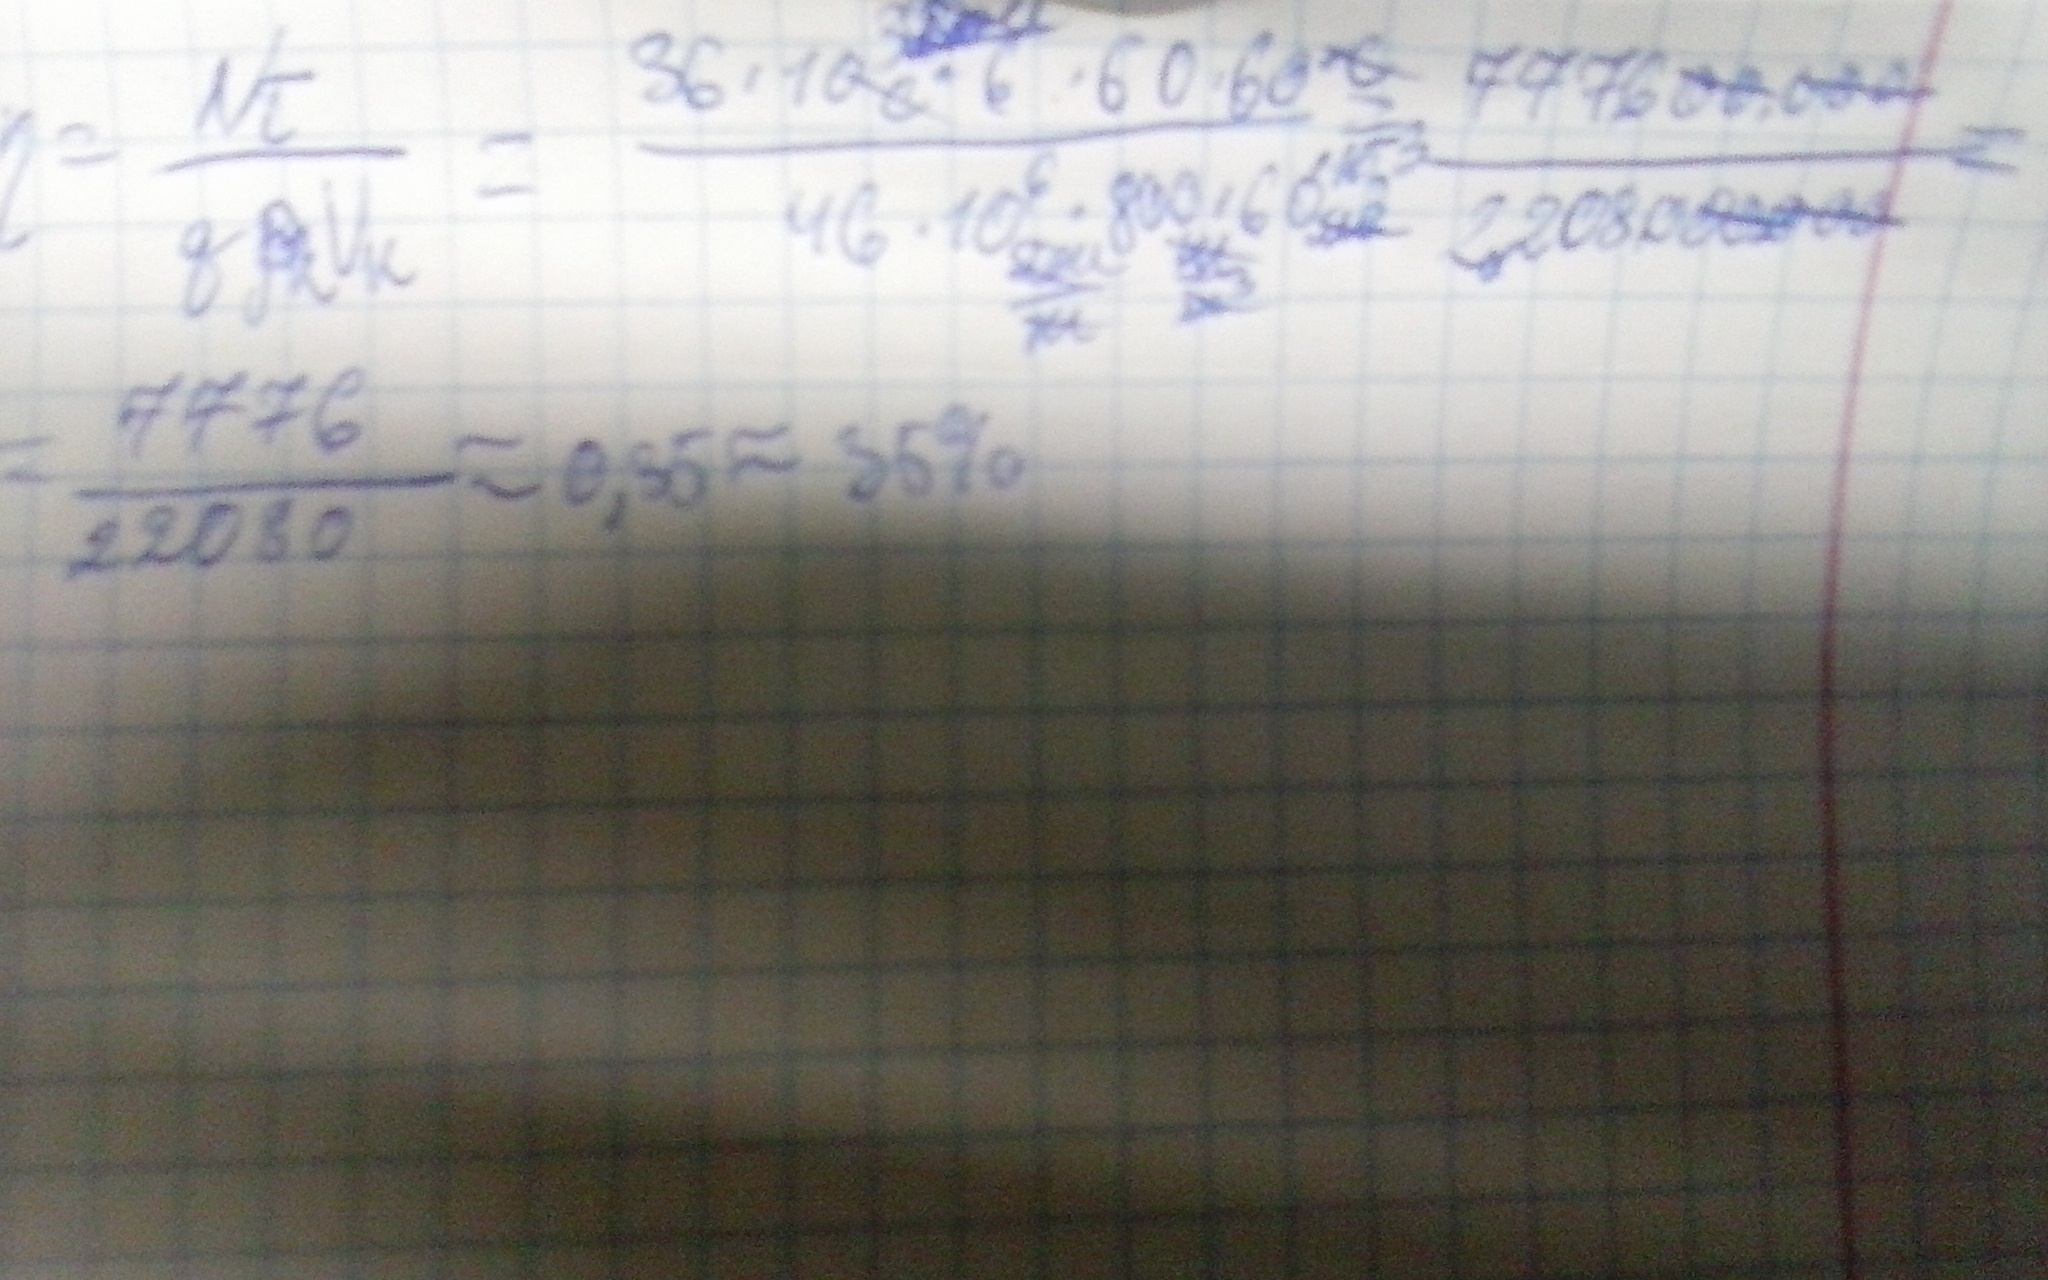 η = Nτ / qρkVk = 36·10³·6·60·60 / 46·10⁶·800·60·10⁻³ = 7776 00.000 / 2208000000 =
= 7776 / 22080 ≈ 0,35 ≈ 35%